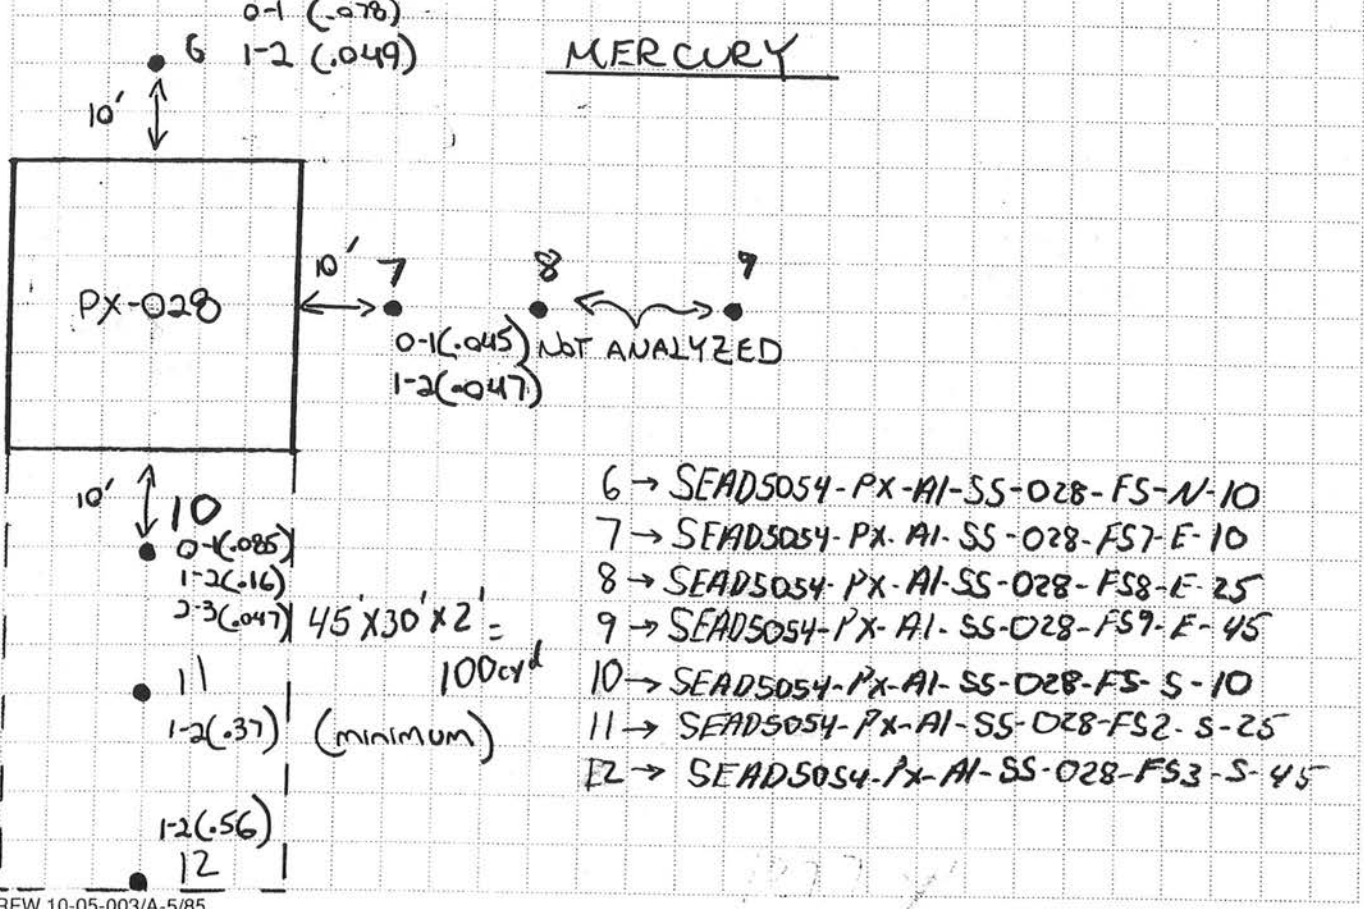 0-1 (.078)
6 1-2 (.049)
MERCURY
10'
PX-028
10' 7 8 9
0-1(.045) NOT ANALYZED
1-2(.047)
10' 10
0-1(.085)
1-2(.16)
2-3(.047) 45'X30'X2' =
100cyd
11
1-2(.37) (minimum)
1-2(.56)
12
6 → SEAD5054-PX-A1-SS-028-FS-N-10
7 → SEAD5054-PX-A1-SS-028-FS7-E-10
8 → SEAD5054-PX-A1-SS-028-FS8-E-25
9 → SEAD5054-PX-A1-SS-028-FS9-E-45
10 → SEAD5054-PX-A1-SS-028-FS-S-10
11 → SEAD5054-PX-A1-SS-028-FS2-S-25
12 → SEAD5054-PX-A1-SS-028-FS3-S-45
RFW 10-05-003/A-5/85